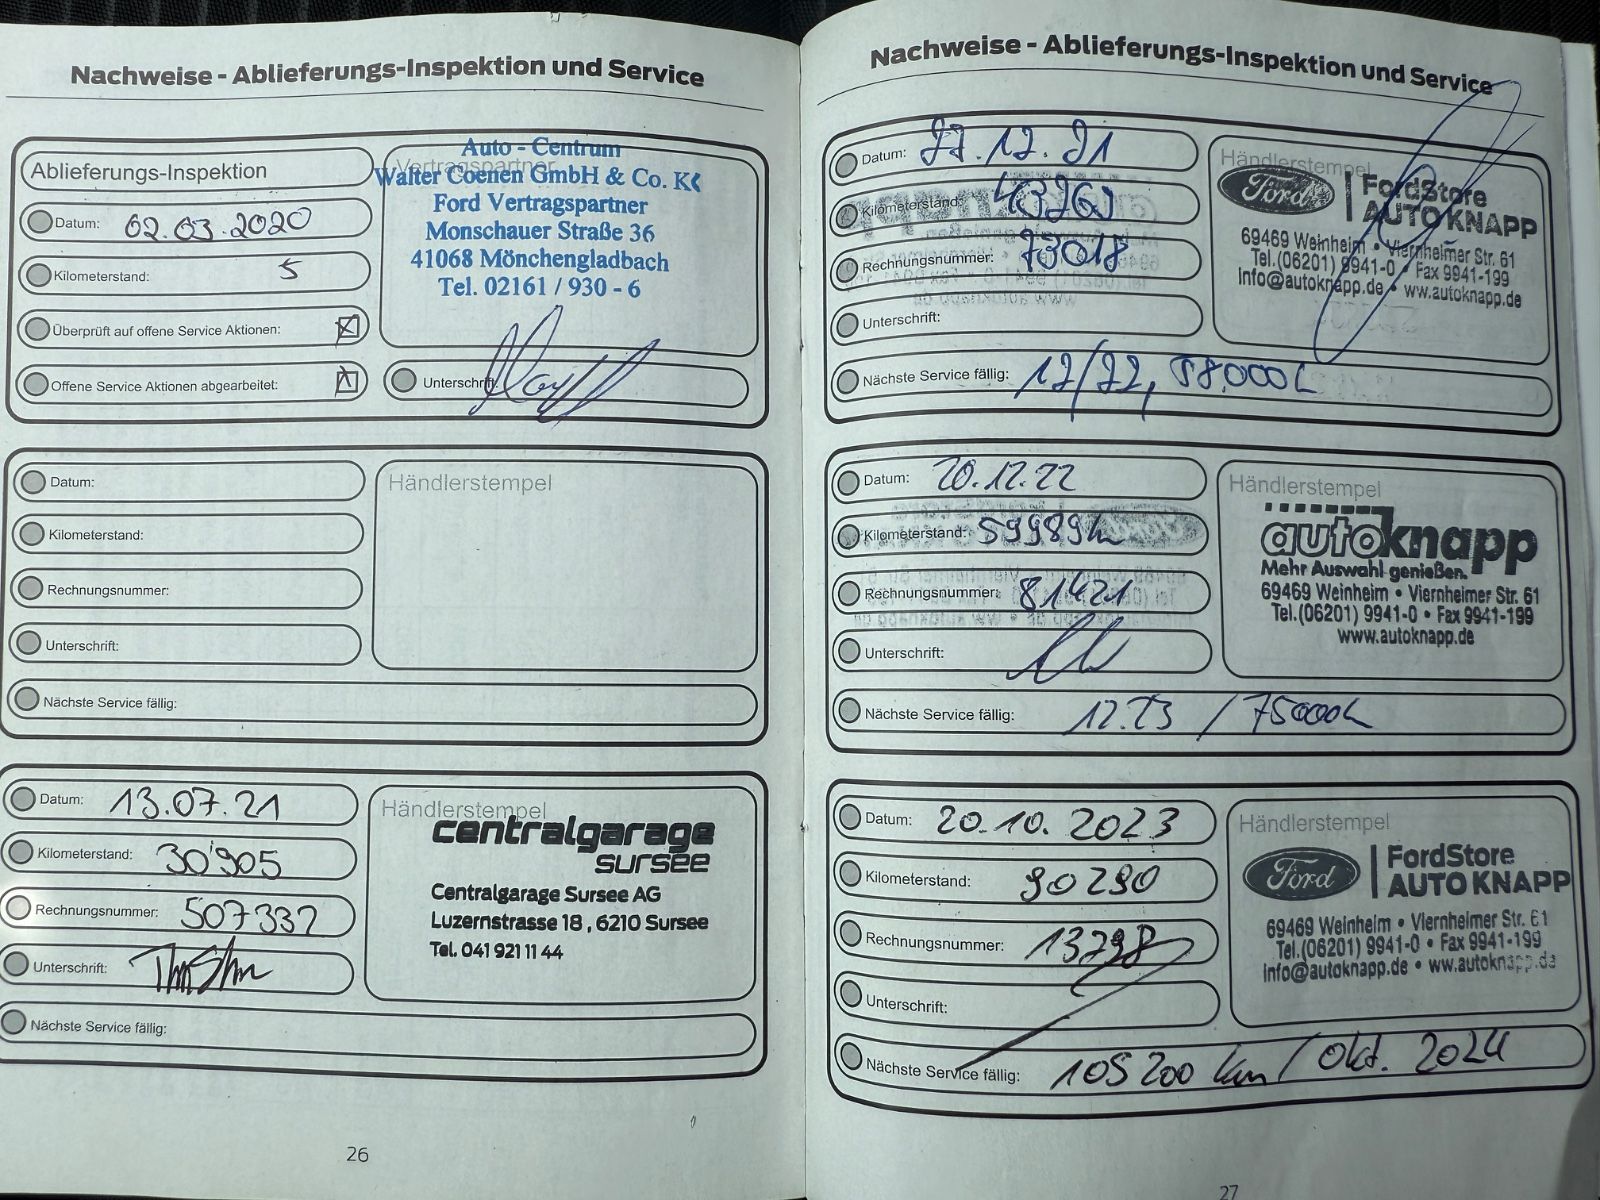 Nachweise - Ablieferungs-Inspektion und Service
Ablieferungs-Inspektion
Datum: 02.03.2020
Kilometerstand: 5
Überprüft auf offene Service Aktionen: X
Offene Service Aktionen abgearbeitet: X
Vertragspartner
Auto - Centrum
Walter Coenen GmbH & Co. K
Ford Vertragspartner
Monschauer Straße 36
41068 Mönchengladbach
Tel. 02161 / 930 - 6
Unterschrift:
Datum:
Kilometerstand:
Rechnungsnummer:
Unterschrift:
Nächste Service fällig:
Händlerstempel
Datum: 13.07.21
Kilometerstand: 30'905
Rechnungsnummer: 507332
Unterschrift:
Nächste Service fällig:
Händlerstempel
centralgarage
sursee
Centralgarage Sursee AG
Luzernstrasse 18, 6210 Sursee
Tel. 041 921 11 44
26
Nachweise - Ablieferungs-Inspektion und Service
Datum: 22.12.21
Kilometerstand:
Rechnungsnummer: 73018
Unterschrift:
Nächste Service fällig: 12/22, 58.000
Händlerstempel
Ford
FordStore
AUTO KNAPP
69469 Weinheim • Viernheimer Str. 61
Tel.(06201) 9941-0 • Fax 9941-199
info@autoknapp.de • ww.autoknapp.de
Datum: 20.12.22
Kilometerstand: 59989km
Rechnungsnummer: 81421
Unterschrift:
Nächste Service fällig: 12.23 / 75000km
Händlerstempel
autoknapp
Mehr Auswahl genießen.
69469 Weinheim • Viernheimer Str. 61
Tel.(06201) 9941-0 • Fax 9941-199
www.autoknapp.de
Datum: 20.10.2023
Kilometerstand: 90290
Rechnungsnummer: 13798
Unterschrift:
Nächste Service fällig: 105 200 km / Okt. 2024
Händlerstempel
Ford
FordStore
AUTO KNAPP
69469 Weinheim • Viernheimer Str. 61
Tel.(06201) 9941-0 • Fax 9941-199
info@autoknapp.de • ww.autoknapp.de
27